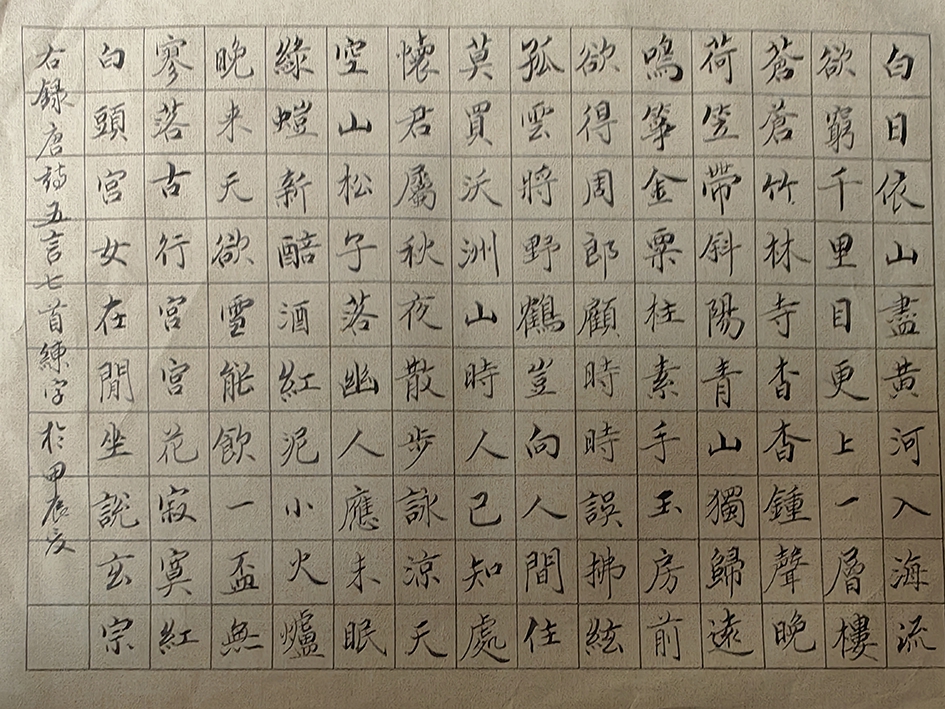 白日依山盡黄河入海流
欲窮千里目更上一層樓
蒼蒼竹林寺杳杳鍾聲晚
荷笠帶斜陽青山獨歸遠
鳴箏金粟柱素手玉房前
欲得周郎顧時時誤拂絃
孤雲將野鶴豈向人間住
莫買沃洲山時人已知處
懷君屬秋夜散步詠涼天
空山松子落幽人應未眠
綠螘新醅酒紅泥小火爐
晚来天欲雪能飲一盃無
寥落古行宮宮花寂寞紅
白頭宮女在閒坐說玄宗
右録唐詩五言七首練字於甲辰夏